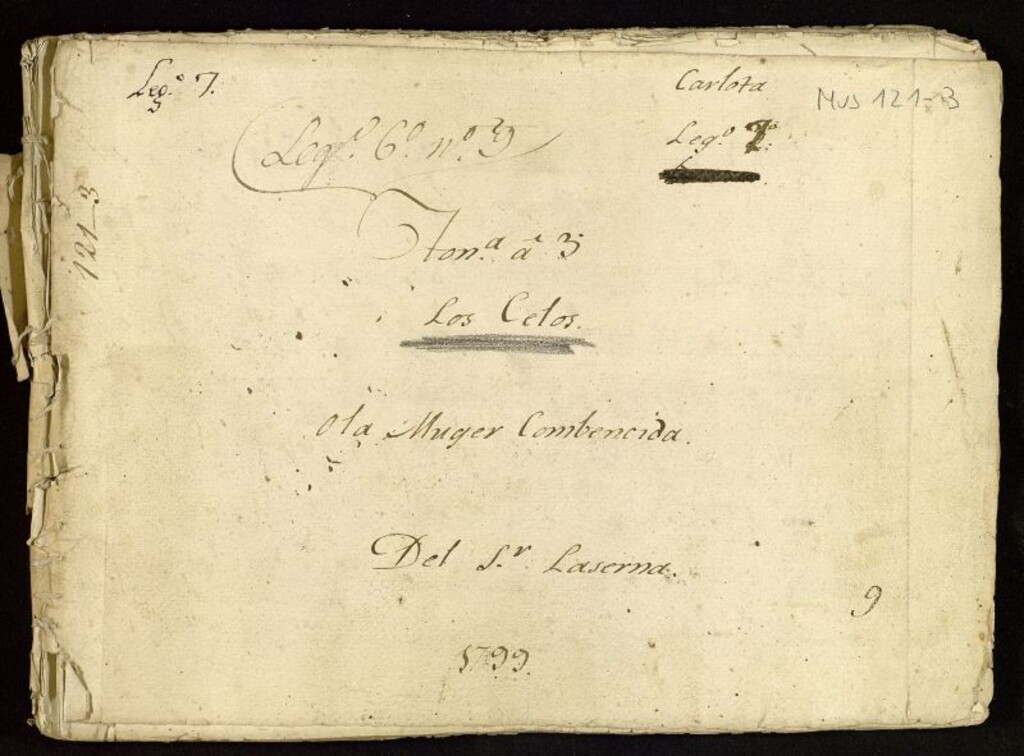 Leg.º 7.
Carlota
MUS 121-3
Leg.º 6.º nº 3
Leg.º 7º
121-3
Ton.ª â 3
Los Celos.
O la Muger Combencida.
Del S.r Laserna.
9
1799.